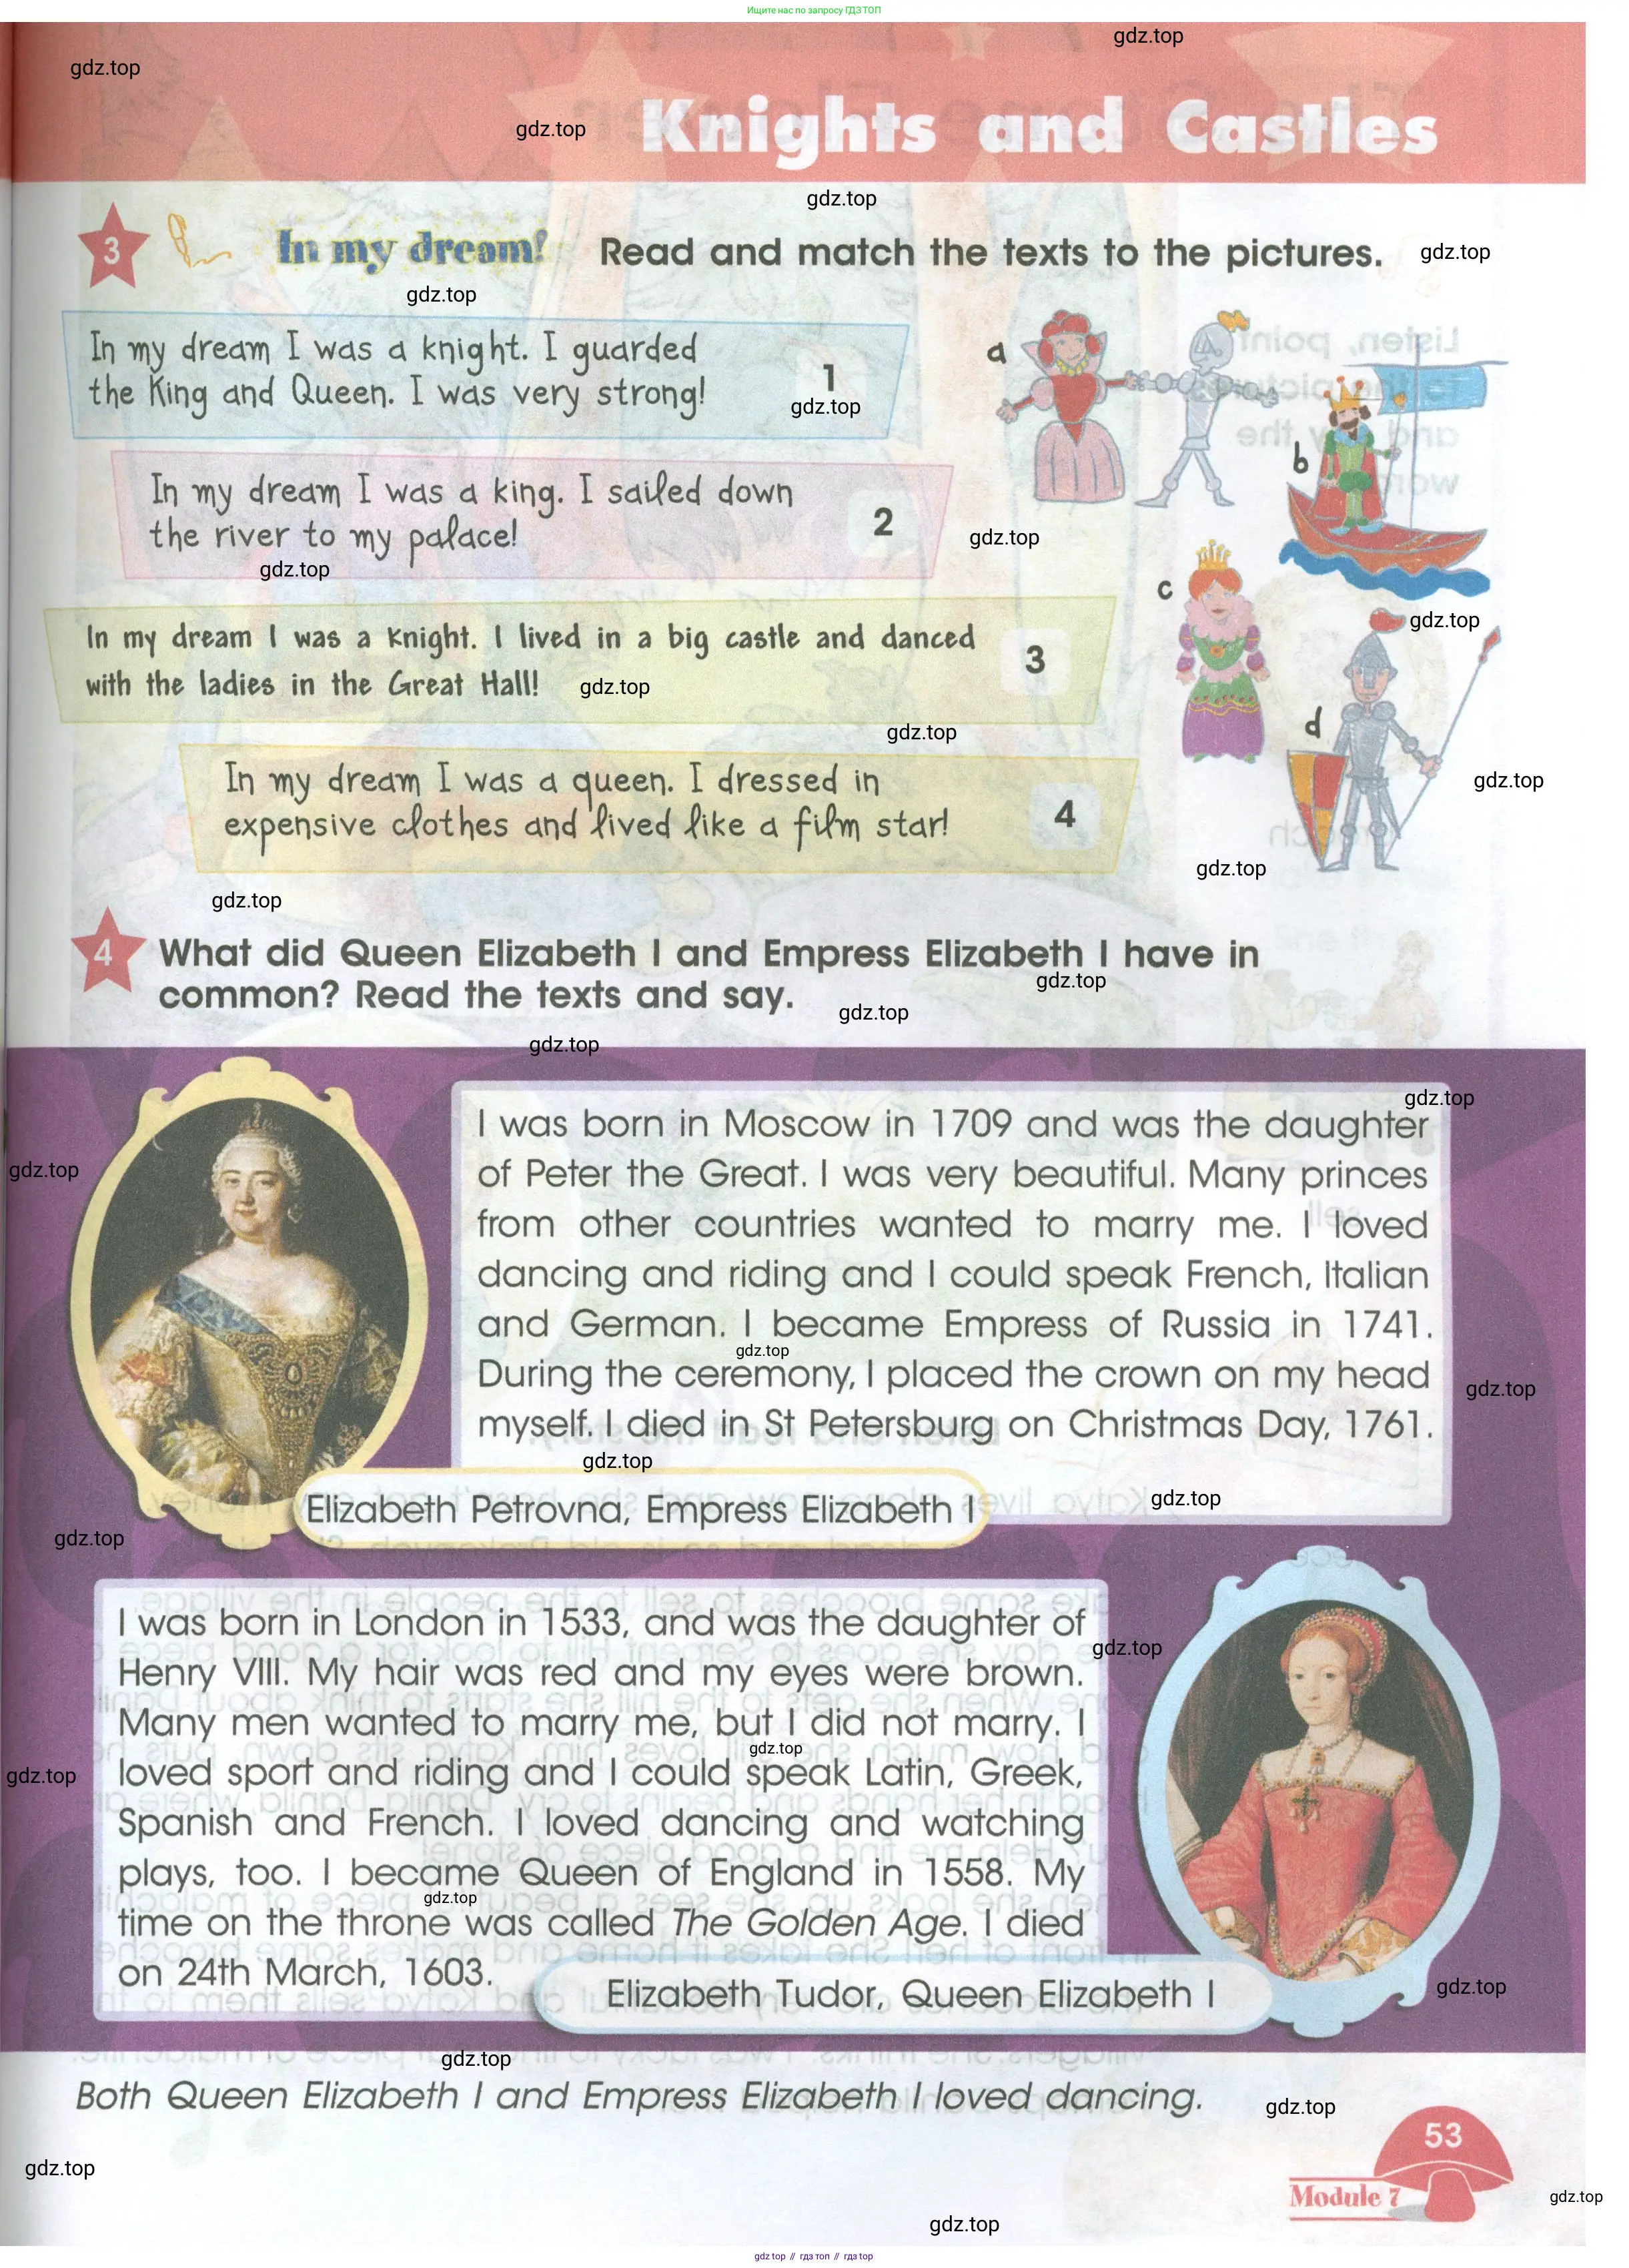 Ищите нас по запросу ГДЗ ТОП
gdz.top
gdz.top
gdz.top
Knights and Castles
gdz.top
3
In my dream!
Read and match the texts to the pictures.
gdz.top
gdz.top
In my dream I was a knight. I guarded
the King and Queen. I was very strong!
1
gdz.top
a
b
In my dream I was a king. I sailed down
the river to my palace!
2
gdz.top
gdz.top
c
gdz.top
In my dream I was a knight. I lived in a big castle and danced
with the ladies in the Great Hall!
3
gdz.top
gdz.top
d
gdz.top
In my dream I was a queen. I dressed in
expensive clothes and lived like a film star!
4
gdz.top
gdz.top
4
What did Queen Elizabeth I and Empress Elizabeth I have in
common? Read the texts and say.
gdz.top
gdz.top
gdz.top
gdz.top
I was born in Moscow in 1709 and was the daughter
of Peter the Great. I was very beautiful. Many princes
from other countries wanted to marry me. I loved
dancing and riding and I could speak French, Italian
and German. I became Empress of Russia in 1741.
During the ceremony, I placed the crown on my head
myself. I died in St Petersburg on Christmas Day, 1761.
gdz.top
gdz.top
gdz.top
gdz.top
Elizabeth Petrovna, Empress Elizabeth I
gdz.top
gdz.top
I was born in London in 1533, and was the daughter of
Henry VIII. My hair was red and my eyes were brown.
Many men wanted to marry me, but I did not marry. I
loved sport and riding and I could speak Latin, Greek,
Spanish and French. I loved dancing and watching
plays, too. I became Queen of England in 1558. My
time on the throne was called The Golden Age. I died
on 24th March, 1603.
gdz.top
gdz.top
gdz.top
gdz.top
Elizabeth Tudor, Queen Elizabeth I
gdz.top
gdz.top
Both Queen Elizabeth I and Empress Elizabeth I loved dancing.
gdz.top
53
Module 7
gdz.top
gdz.top
gdz.top
gdz top // гдз топ // гдз top